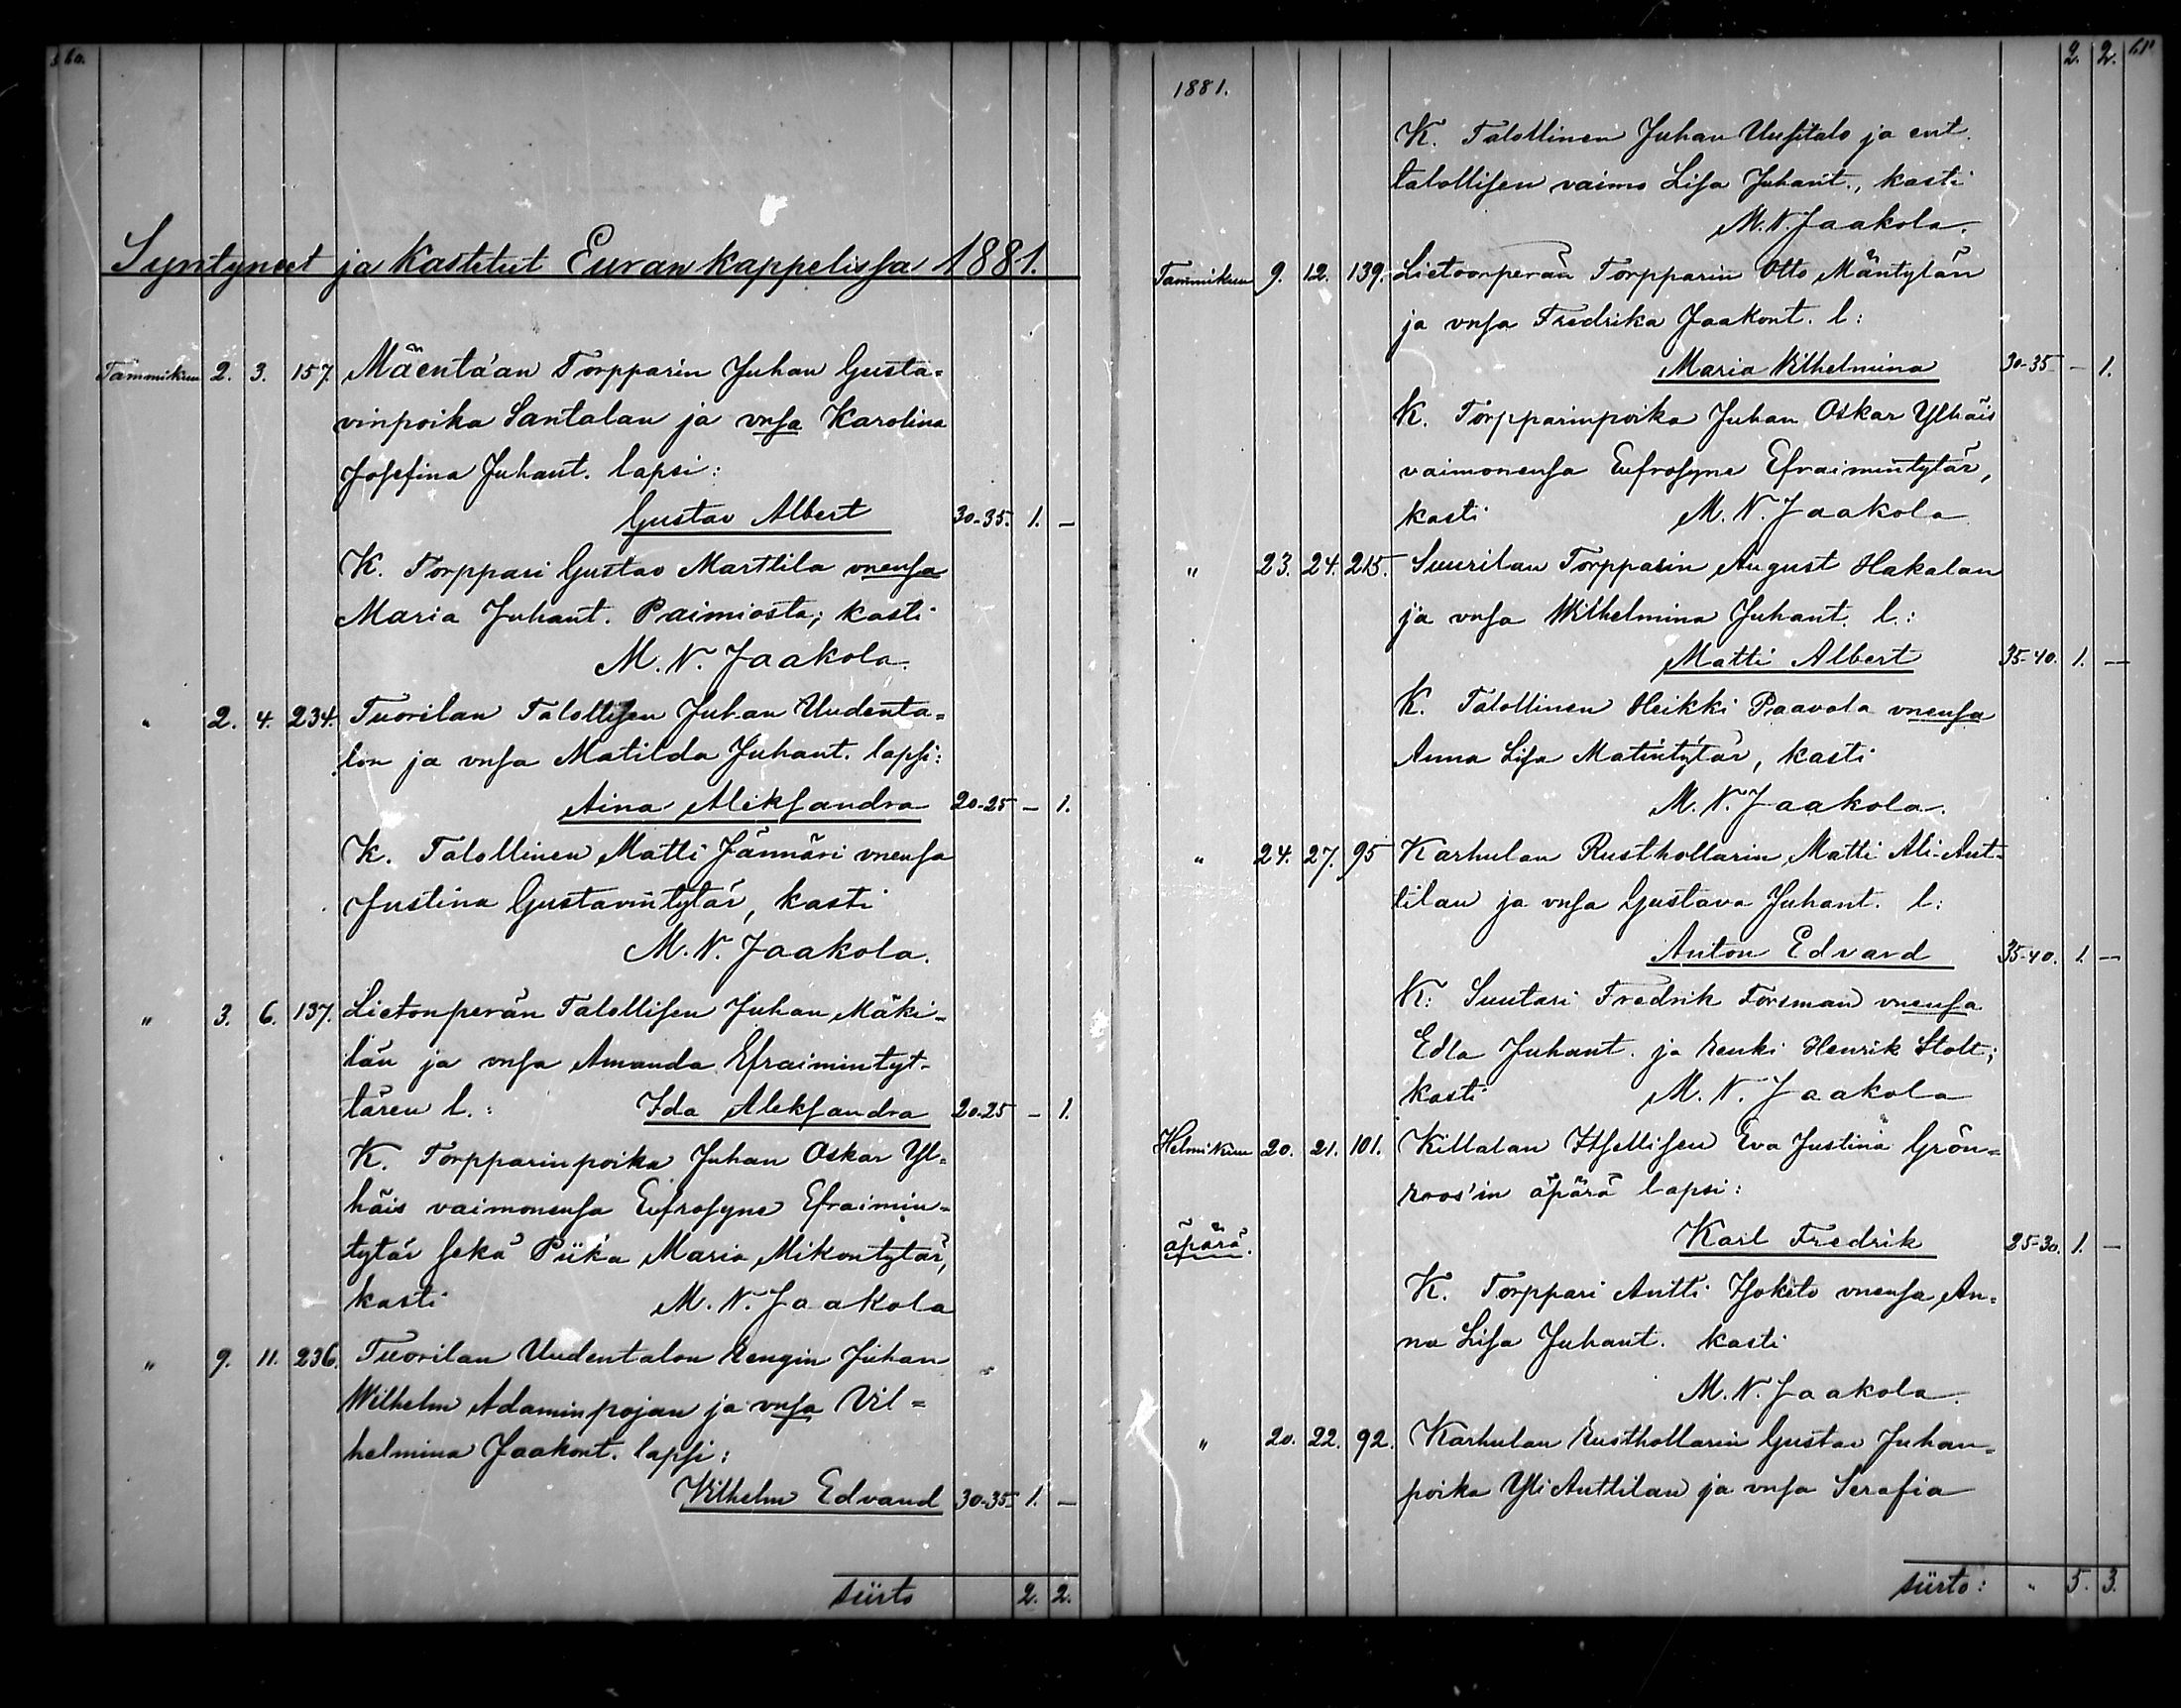 60.
Syntyneet ja Kastetut Euran kappelissa 1881.
Tammikuu 2. 3. 157. Mäentaan Torpparin Juhan Gusta=
vinpoika Santalan ja vnsa Karolina
Josefina Juhant. lapsi:
Gustav Albert 30-35. 1. —
K. Torppari Gustav Marttila vnensa
Maria Juhant. Paimiosta; kasti
M. N. Jaakola.
" 2. 4. 234. Tuorilan Talollisen Juhan Uudenta=
lon ja vnsa Matilda Juhant. lapsi:
Aina Aleksandra 20-25 — 1.
K. Talollinen Matti Jännäri vnensa
Justina Gustavintytär, kasti
M. N. Jaakola.
" 3. 6. 137. Lietonperän Talollisen Juhan Mäki-
län ja vnsa Amanda Efraimintyt-
tären l.: Ida Aleksandra 20-25 — 1.
K. Torpparinpoika Juhan Oskar Yl=
häis vaimonensa Eufrosyne Efraimin-
tytär sekä Piika Maria Mikontytär,
kasti M. N. Jaakola
" 9. 11. 236. Tuorilan Uudentalon Rengin Juhan
Wilhelm Adaminpojan ja vnsa Vil=
helmina Jaakont. lapsi:
Wilhelm Edvard 30-35 1. —
siirto 2. 2.
2. 2. 61
1881.
K. Talollinen Juhan Uusitalo ja ent.
talollisen vaimo Lisa Juhant., kasti
M. N. Jaakola.
Tammikuu 9. 12. 139. Lietoonperän Torpparin Otto Mäntylän
ja vnsa Fredrika Jaakont. l:
Maria Wilhelmina 30-35 — 1.
K. Torpparinpoika Juhan Oskar Ylhäis
vaimonensa Eufrosyne Efraimintytär,
kasti M. N. Jaakola
" 23. 24. 215. Suurilan Torpparin August Hakalan
ja vnsa Wilhelmina Juhant. l.:
Matti Albert 35-40. 1. —
K. Talollinen Heikki Paavola vnensa
Anna Lisa Matintytär, kasti
M. N. Jaakola.
" 24. 27. 95 Karhulan Rusthollarin Matti Ali-Ant-
tilan ja vnsa Gustava Juhant. l:
Anton Edvard 35-40. 1. —
K: Suutari Fredrik Forsman vnensa
Edla Juhant. ja Renki Henrik Stolt;
kasti M. N. Jaakola
Helmikuu 20. 21. 101. Killalan Itsellisen Eva Justina Grön=
roos'in äpärä lapsi:
äpärä. Karl Fredrik 25-30. 1. —
K. Torppari Antti Isoketo vnensa An=
na Lisa Juhant. kasti
M. N. Jaakola.
" 20. 22. 92. Karhulan Rusthollarin Gustav Juhan=
poika Yli Anttilan ja vnsa Serafia
siirto: " 5. 3.